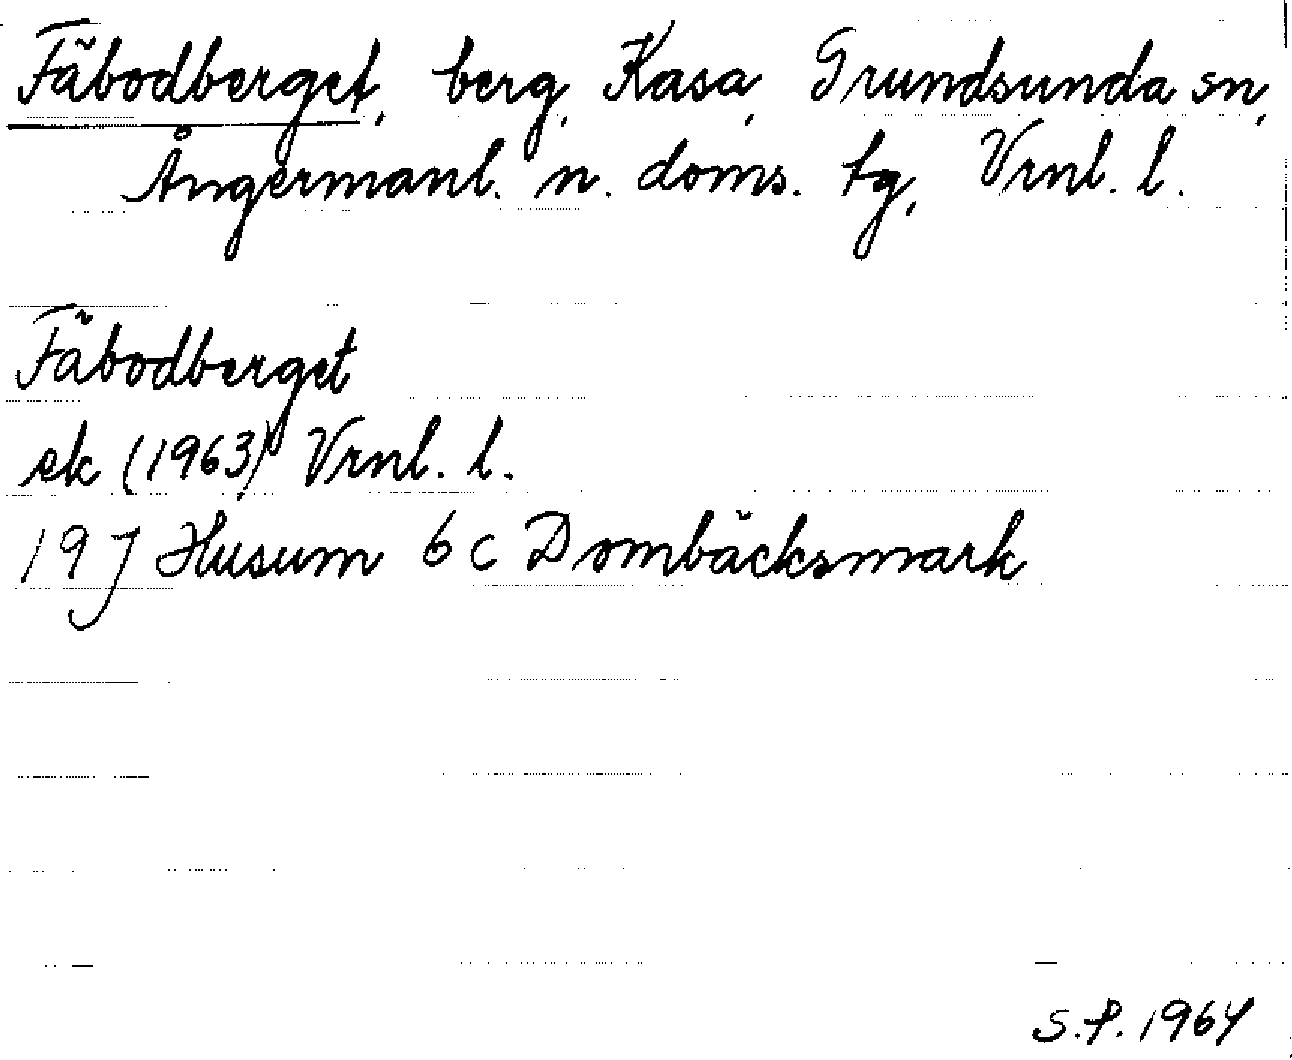 Fäbodberget, berg, Kasa, Grundsunda sn,
Ångermanl. n. doms. tg, Vrnl. l.
Fäbodberget
ek (1963) Vrnl. l.
19 J Husum 6 c Dombäcksmark
S.P. 1964